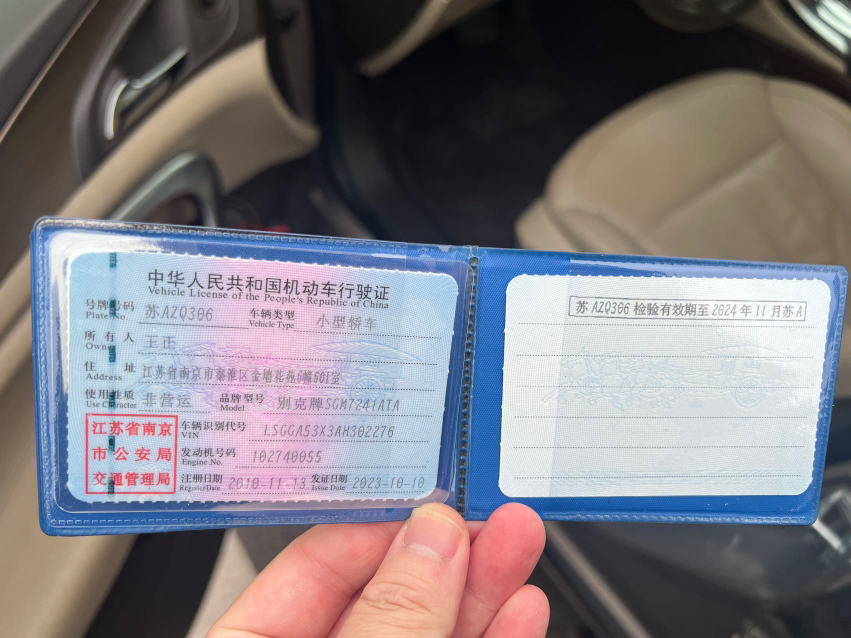 中华人民共和国机动车行驶证
Vehicle License of the People's Republic of China
号牌号码 苏AZQ306 车辆类型 小型轿车
Plate No. Vehicle Type
所有人 王正
Owner
住址 江苏省南京市秦淮区金塘花苑6幢601室
Address
使用性质 非营运 品牌型号 别克牌SGM7241ATA
Use Character Model
江苏省南京
市公安局
交通管理局
车辆识别代号 LSGGA53X3AH302276
VIN
发动机号码 102740055
Engine No.
注册日期 2010-11-13 发证日期 2023-10-10
Register Date Issue Date
苏AZQ306 检验有效期至2024年11月苏A